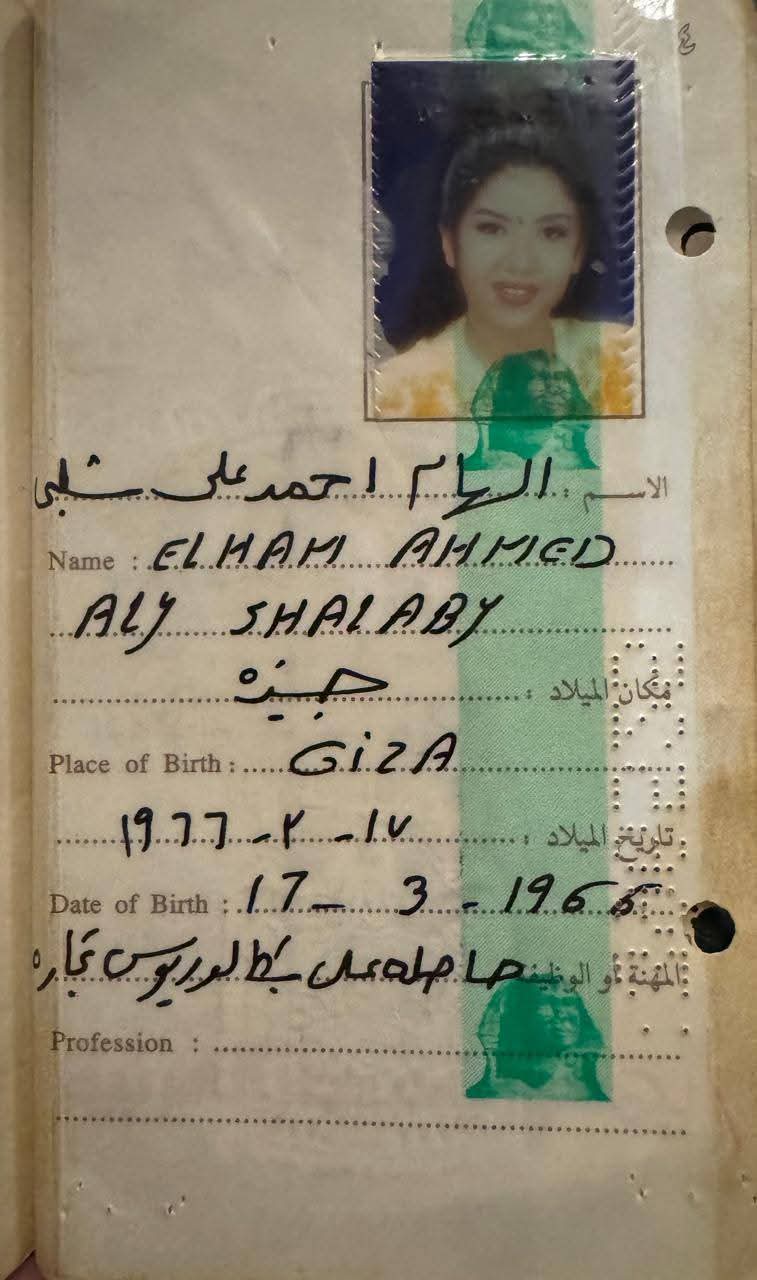 ٤
الاسم : الهام احمد على شلبى
Name : ELHAM AHMED
ALY SHALABY
مكان الميلاد : جيزه
Place of Birth : GIZA
تاريخ الميلاد : ١٧ - ٢ - ١٩٦٦
Date of Birth : 17 - 3 - 1966
المهنة أو الوظيفة حاصله على بكالوريوس تجاره
Profession :